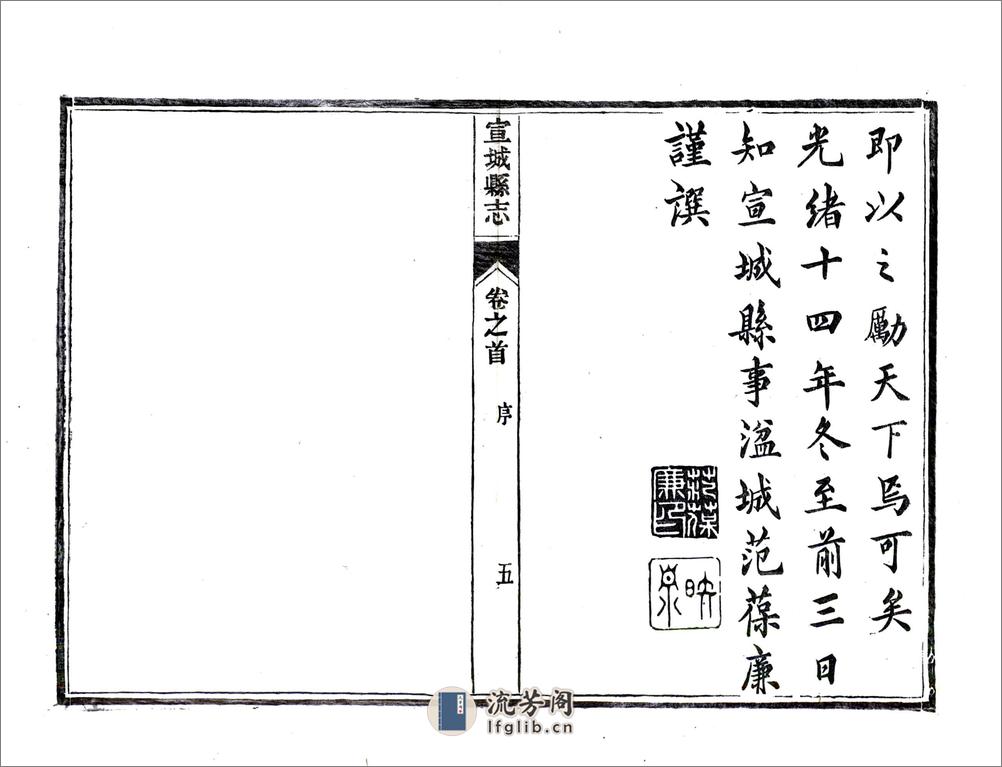 即以之勵天下焉可矣
光緒十四年冬至前三日
知宣城縣事湓城范葆廉
謹譔
范葆廉印
映泉
宣城縣志
卷之首
序
五
流芳阁
lfglib.cn